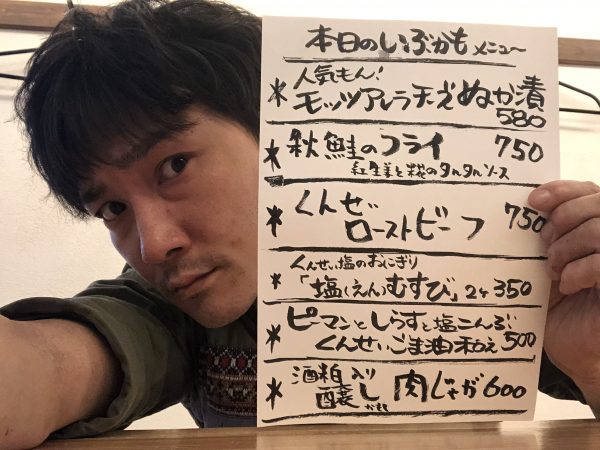 本日のいぶかもメニュー
人気もん!
* モッツアレラチーズぬか漬
580
* 秋鮭のフライ 750
紅生姜と糀のタルタルソース
* くんせい
ローストビーフ 750
くんせい塩のおにぎり
* 「塩(えん)むすび」2ヶ350
* ピーマンとしらすと塩こんぶ
くんせいごま油和え 500
* 酒粕入り
醸し 肉じゃが600
かもし